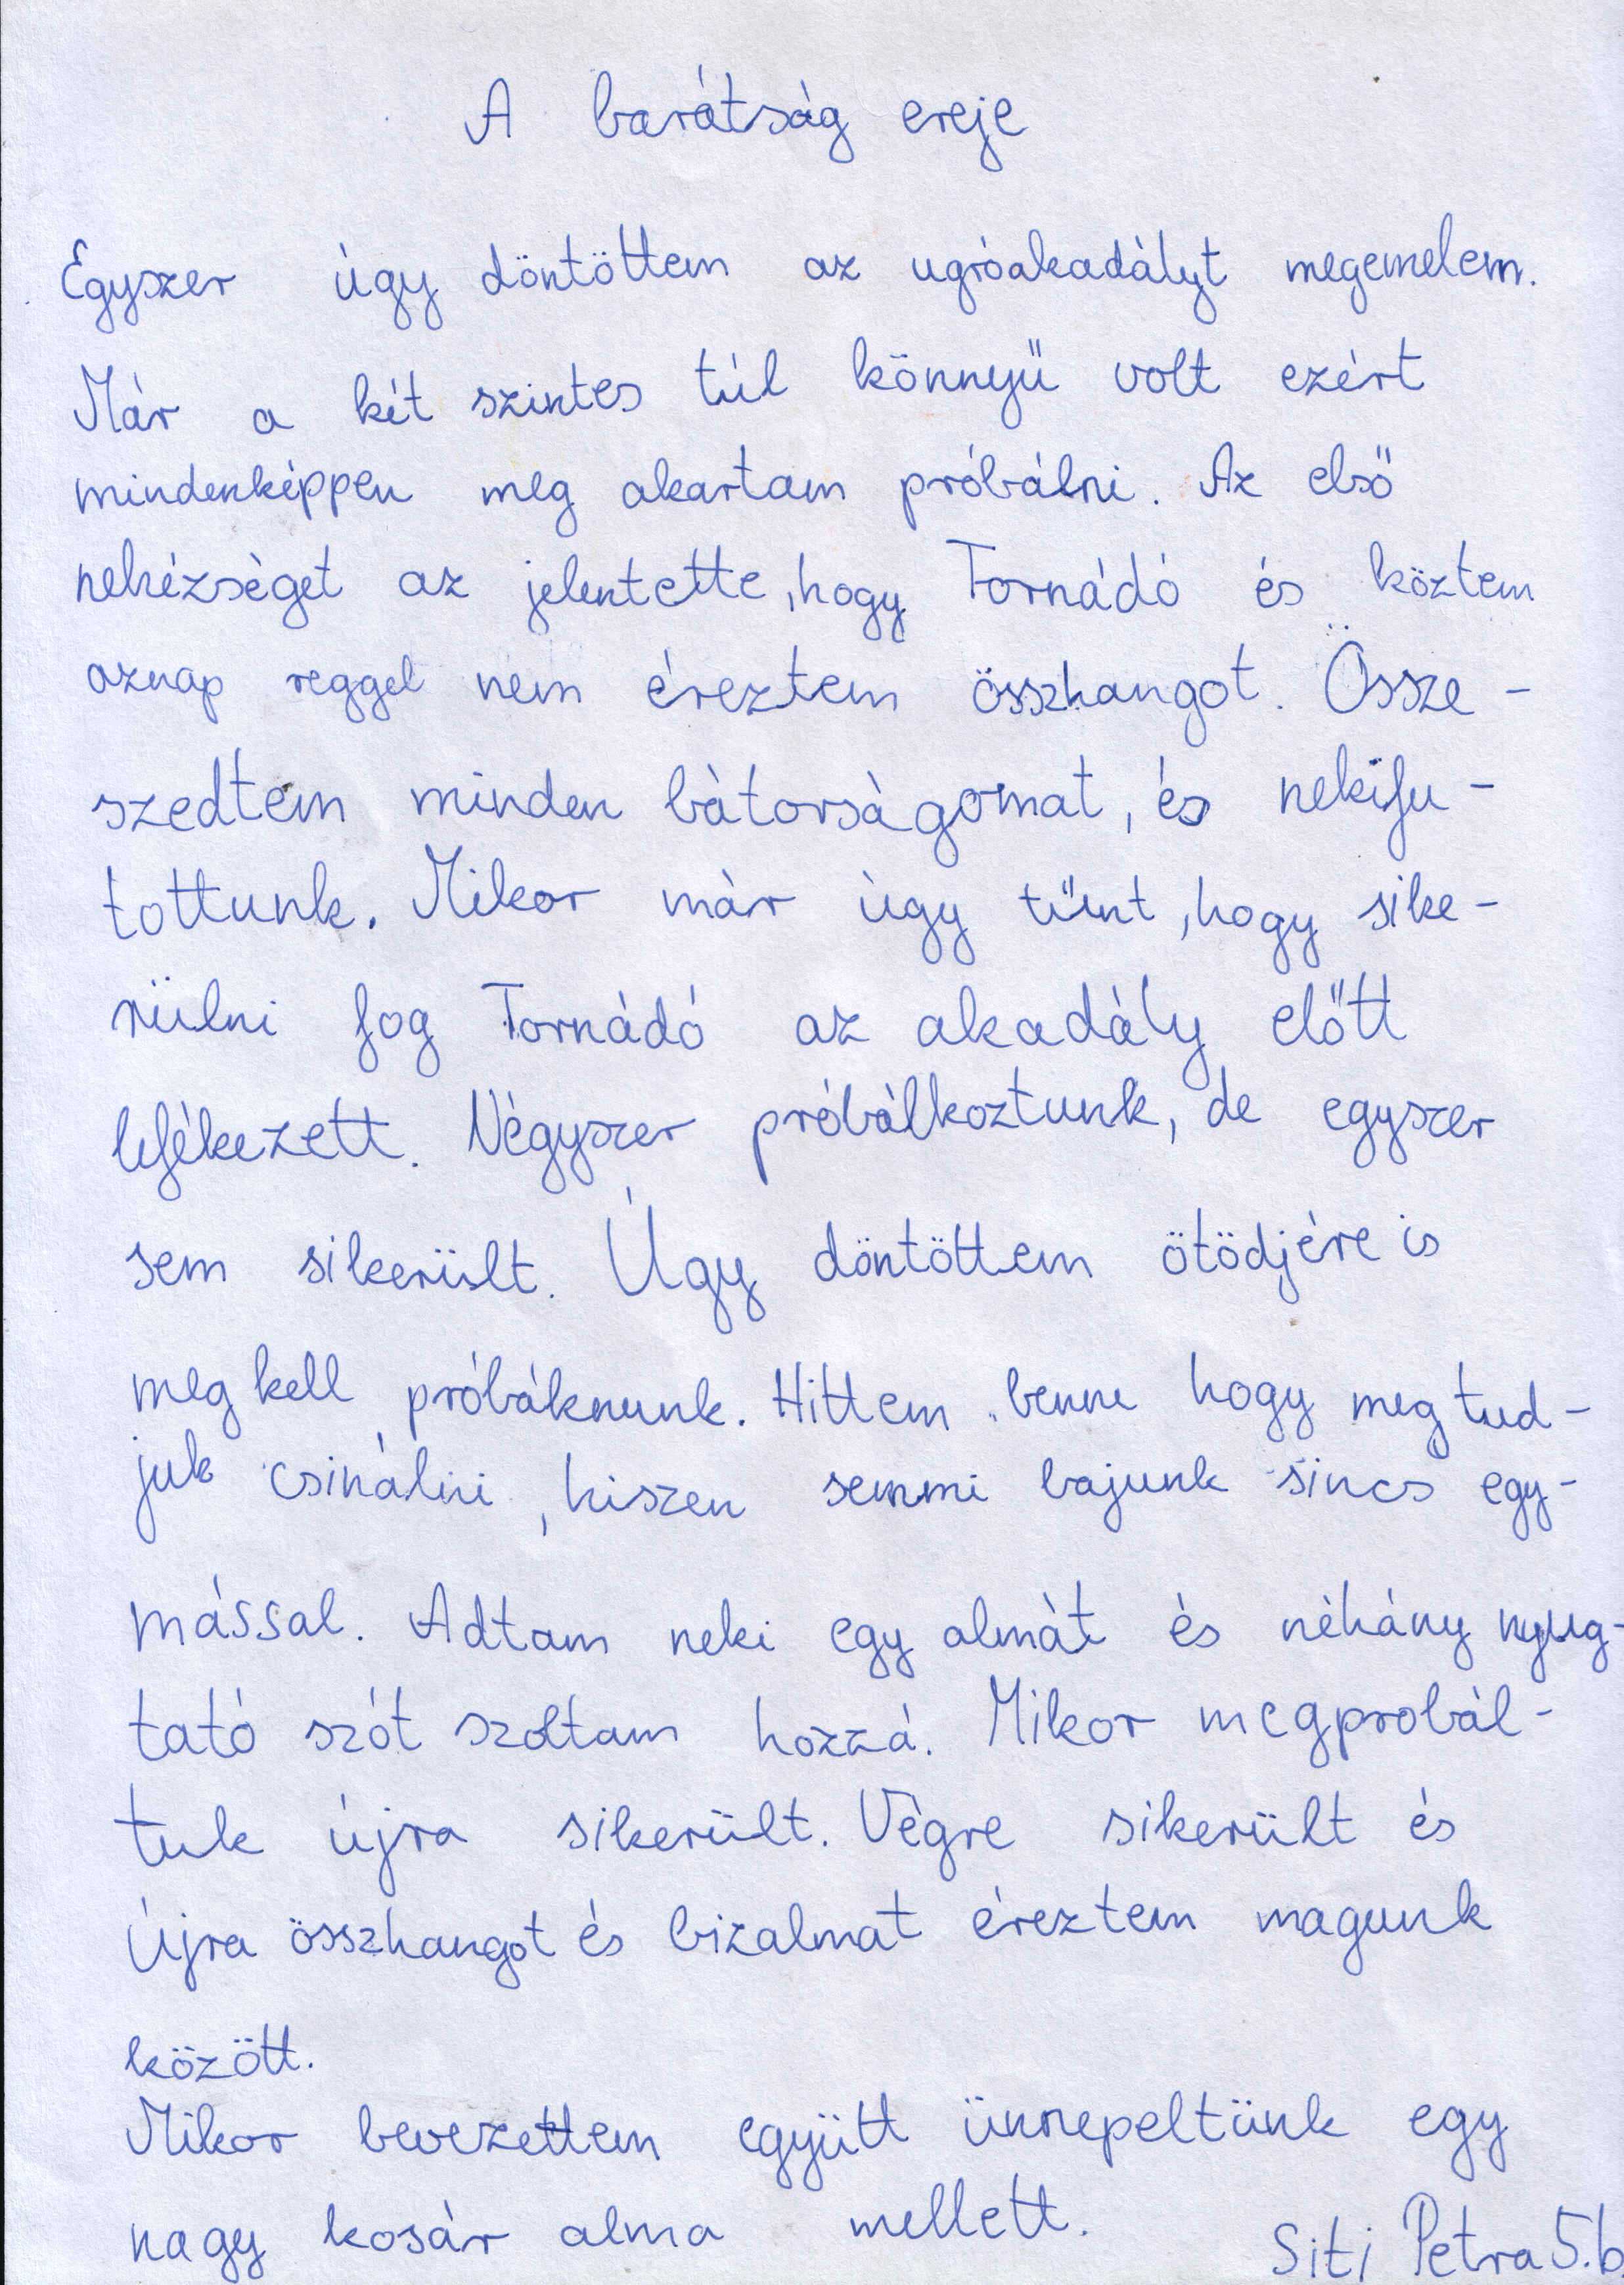 A barátság ereje
Egyszer úgy döntöttem az ugróakadályt megemelem.
Már a két szintes túl könnyű volt ezért
mindenképpen meg akartam próbálni. Az első
nehézséget az jelentette, hogy Tornádó és köztem
aznap reggel nem éreztem összhangot. Össze-
szedtem minden bátorságomat, és nekifu-
tottunk. Mikor már úgy tűnt, hogy sike-
rülni fog Tornádó az akadály előtt
lefékezett. Négyszer próbálkoztunk, de egyszer
sem sikerült. Úgy döntöttem ötödjére is
meg kell próbáknunk. Hittem benne hogy meg tud-
juk csinálni, hiszen semmi bajunk sincs egy-
mással. Adtam neki egy almát és néhány nyug-
tató szót szoltam hozzá. Mikor megprobál-
tuk újra sikerült. Végre sikerült és
újra összhangot és bizalmat éreztem magunk
között.
Mikor bevezettem együtt ünnepeltünk egy
nagy kosár alma mellett.
Siti Petra 5.b